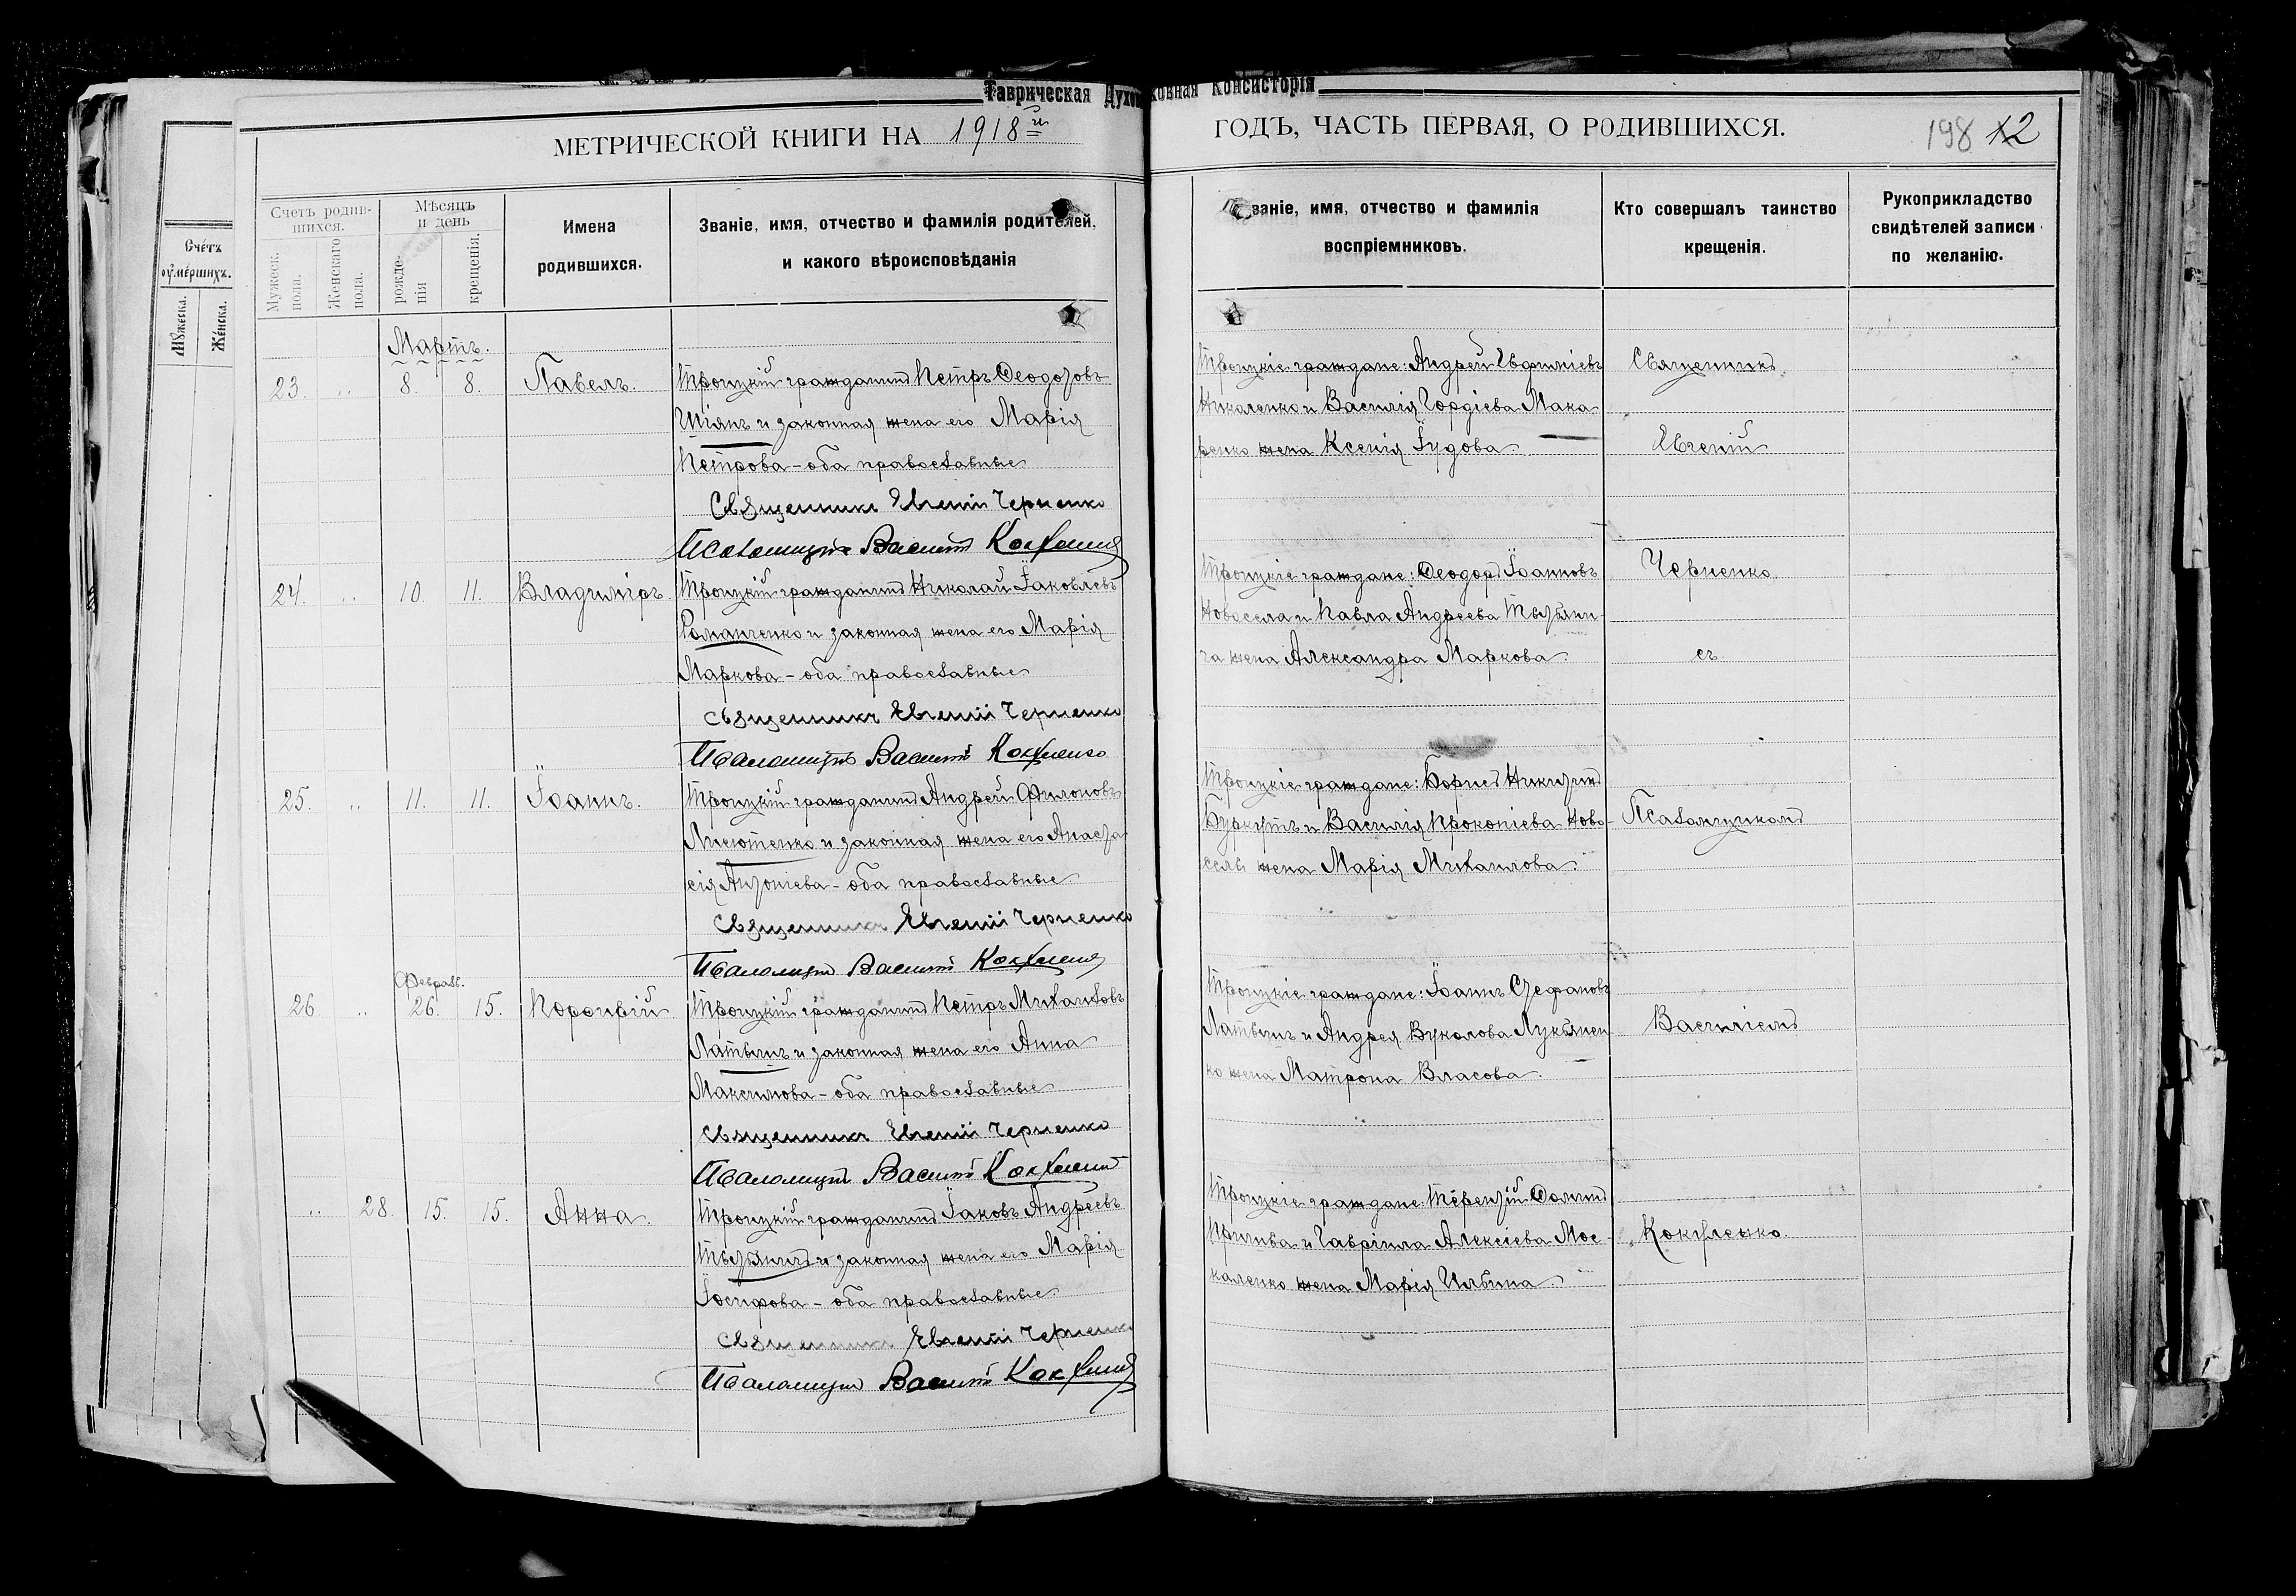 Таврическая Духовная Консисторія
МЕТРИЧЕСКОЙ КНИГИ НА 1918й
Счетъ родив-
шихся.
Мужеск. пола.
Женскаго пола.
Мѣсяцъ
и день
рожде-
нія
крещенія.
Имена
родившихся.
Званіе, имя, отчество и фамилія родителей,
и какого вѣроисповѣданія
Счётъ
оумершихъ.
Мужеска.
Женска.
Мартъ.
23. „ 8. 8. Павелъ. Троицкій гражданинъ Петръ Ѳеодоровъ
и законная жена его Марія
Петрова – оба православные
Священникъ Евгеній Черненко
Псаломщикъ Василій
24. „ 10. 11. Владиміръ. Троицкій гражданинъ Николай Іаковлевъ
Романченко и законная жена его Марія
Маркова – оба православные
Священникъ Евгеній Черненко
Псаломщикъ Василій
25. „ 11. 11. Іоаннъ. Троицкій гражданинъ Андрей Филоновъ
и законная жена его Анаста-
сія Антоніева – оба православные
Священникъ Евгеній Черненко
Псаломщикъ Василій
Феврал.
26. „ 26. 15. Порфирій. Троицкій гражданинъ Петръ Михаиловъ
Латышъ и законная жена его Анна
Максимова – оба православные
Священникъ Евгеній Черненко
Псаломщикъ Василій
„ 28. 15. 15. Анна. Троицкій гражданинъ Іаковъ Андреевъ
и законная жена его Марія
Іосифова – оба православные
Священникъ Евгеній Черненко
Псаломщикъ Василій
ГОДЪ, ЧАСТЬ ПЕРВАЯ, О РОДИВШИХСЯ.
198 12
Званіе, имя, отчество и фамилія
воспріемниковъ.
Кто совершалъ таинство
крещенія.
Рукоприкладство
свидѣтелей записи
по желанію.
Троицкіе граждане: Андрей Евфиміевъ
Николенко и Василія Гордіева Мака-
ренко жена Ксенія Іудова.
Священникъ
Евгеній
Троицкіе граждане: Ѳеодоръ Іоанновъ
Новосела и Павла Андреева
жена Александра Маркова.
Черненко
съ
Троицкіе граждане: Борисъ Никитинъ
Буркутъ и Василія Прокопіева Ново-
селы жена Марія Михаилова.
Псаломщикомъ
Троицкіе граждане: Іоаннъ Стефановъ
Латышъ и Андрея Вуколова Лукьянен-
ко жена Матрона Власова.
Василіемъ
Троицкіе граждане: Терентій Ѳоминъ
и Гавріила Алексіева Мос-
каленко жена Марія Ильина.